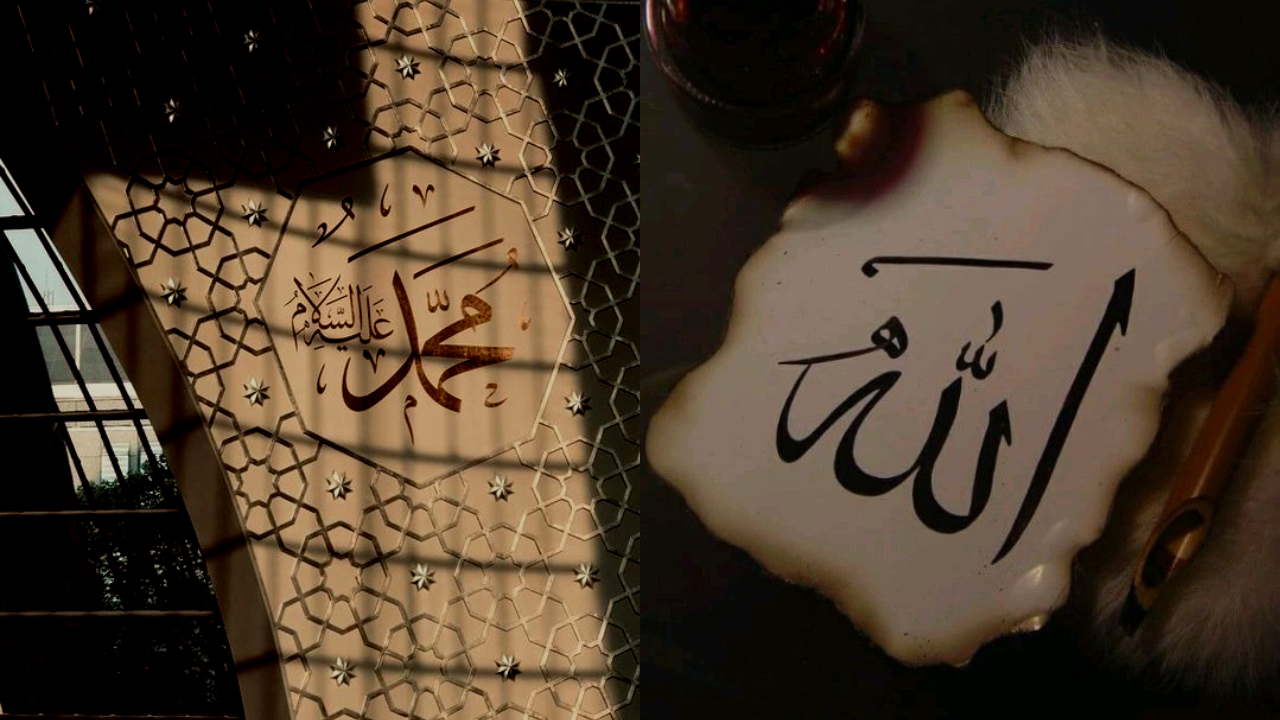 محمد عليه السلام
الله